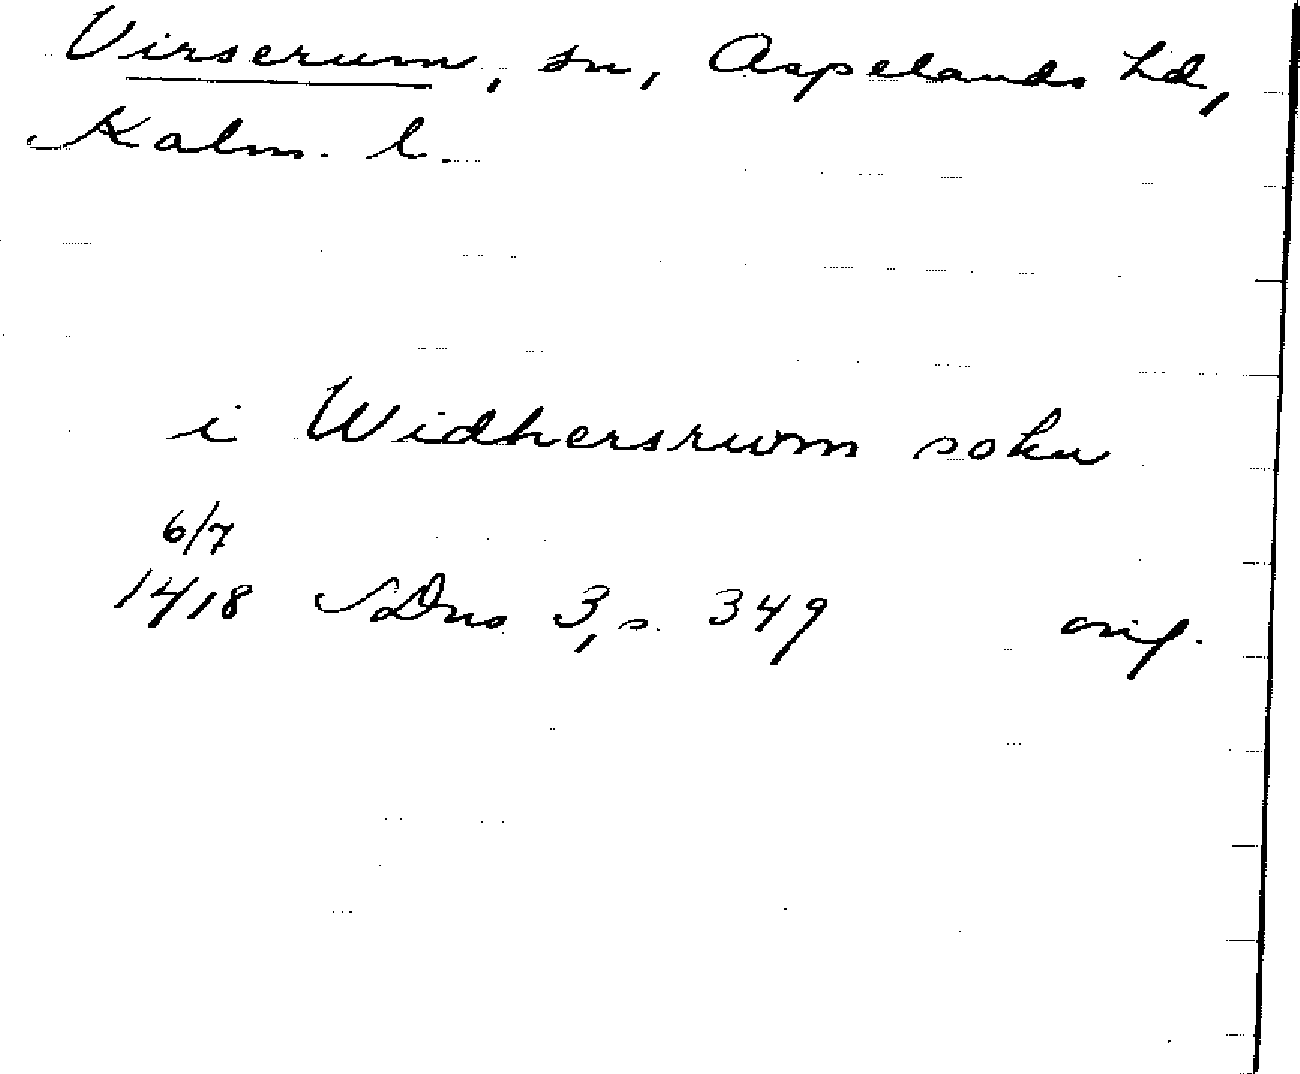 Virserum, sn, Aspelands hd,
Kalm. l.
i Widhersrwm sokn
6/7
1418 SDns 3, s. 349 orig.